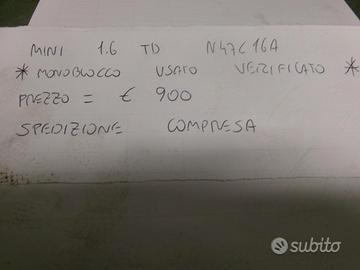 MINI 1.6 TD N47C16A
* MONOBLOCCO USATO VERIFICATO *
PREZZO = € 900
SPEDIZIONE COMPRESA
subito